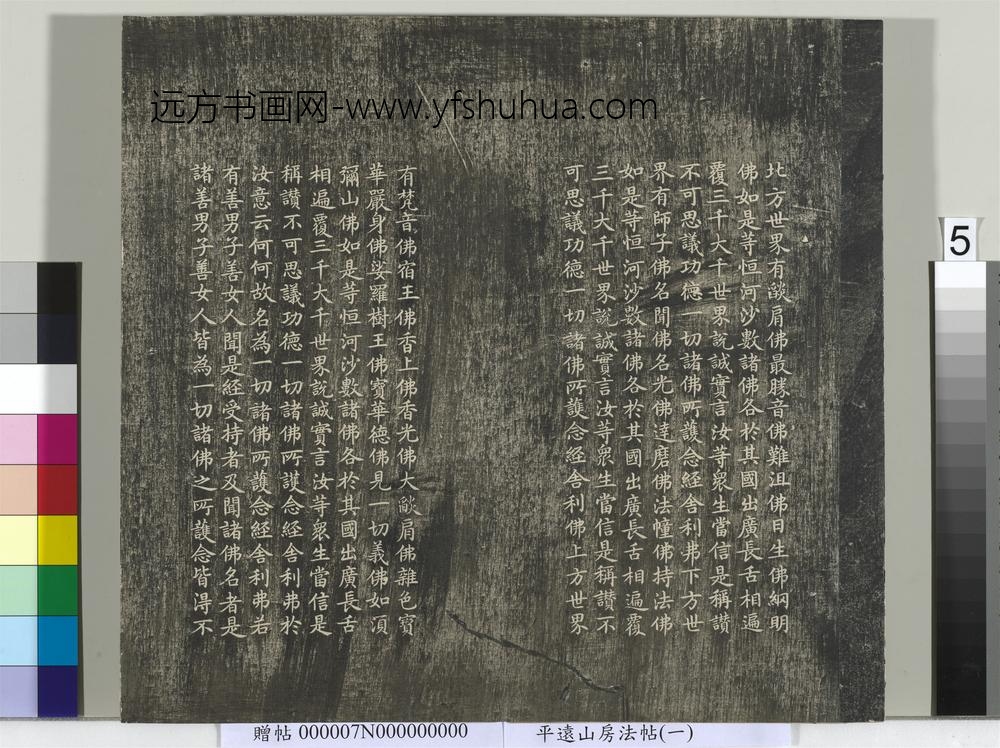 远方书画网-www.yfshuhua.com
北方世界有燄肩佛最勝音佛難沮佛日生佛網明
佛如是等恒河沙數諸佛各於其國出廣長舌相遍
覆三千大千世界說誠實言汝等眾生當信是稱讚
不可思議功德一切諸佛所護念經舍利弗下方世
界有師子佛名聞佛名光佛達磨佛法幢佛持法佛
如是等恒河沙數諸佛各於其國出廣長舌相遍覆
三千大千世界說誠實言汝等眾生當信是稱讚不
可思議功德一切諸佛所護念經舍利佛上方世界
有梵音佛宿王佛香上佛香光佛大燄肩佛雜色寶
華嚴身佛娑羅樹王佛寶華德佛見一切義佛如須
彌山佛如是等恒河沙數諸佛各於其國出廣長舌
相遍覆三千大千世界說誠實言汝等眾生當信是
稱讚不可思議功德一切諸佛所護念經舍利弗於
汝意云何何故名為一切諸佛所護念經舍利弗若
有善男子善女人聞是經受持者及聞諸佛名者是
諸善男子善女人皆為一切諸佛之所護念皆得不
5
贈帖 000007N000000000
平遠山房法帖(一)